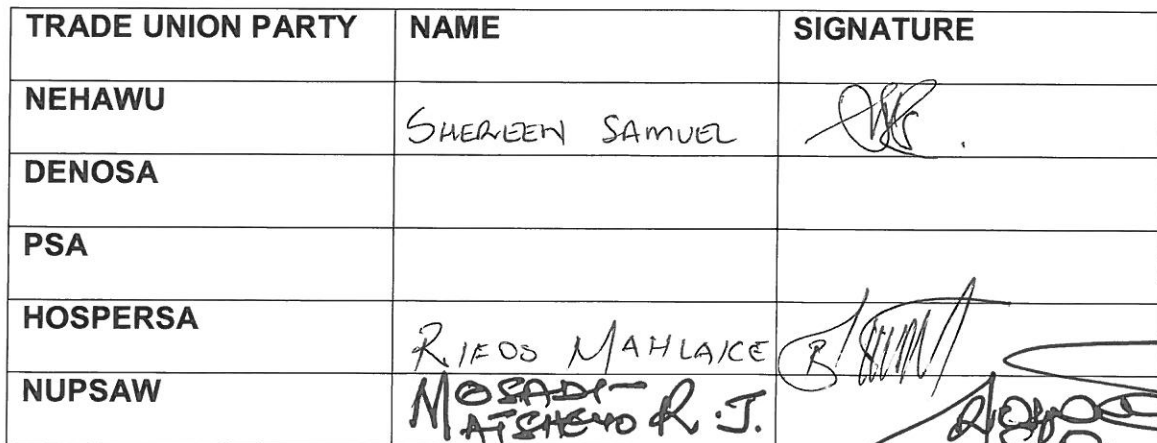 TRADE UNION PARTY NAME SIGNATURE
NEHAWU SHEREEN SAMUEL
DENOSA
PSA
HOSPERSA MAHLAKE
NUPSAW MOSADI- R.J.